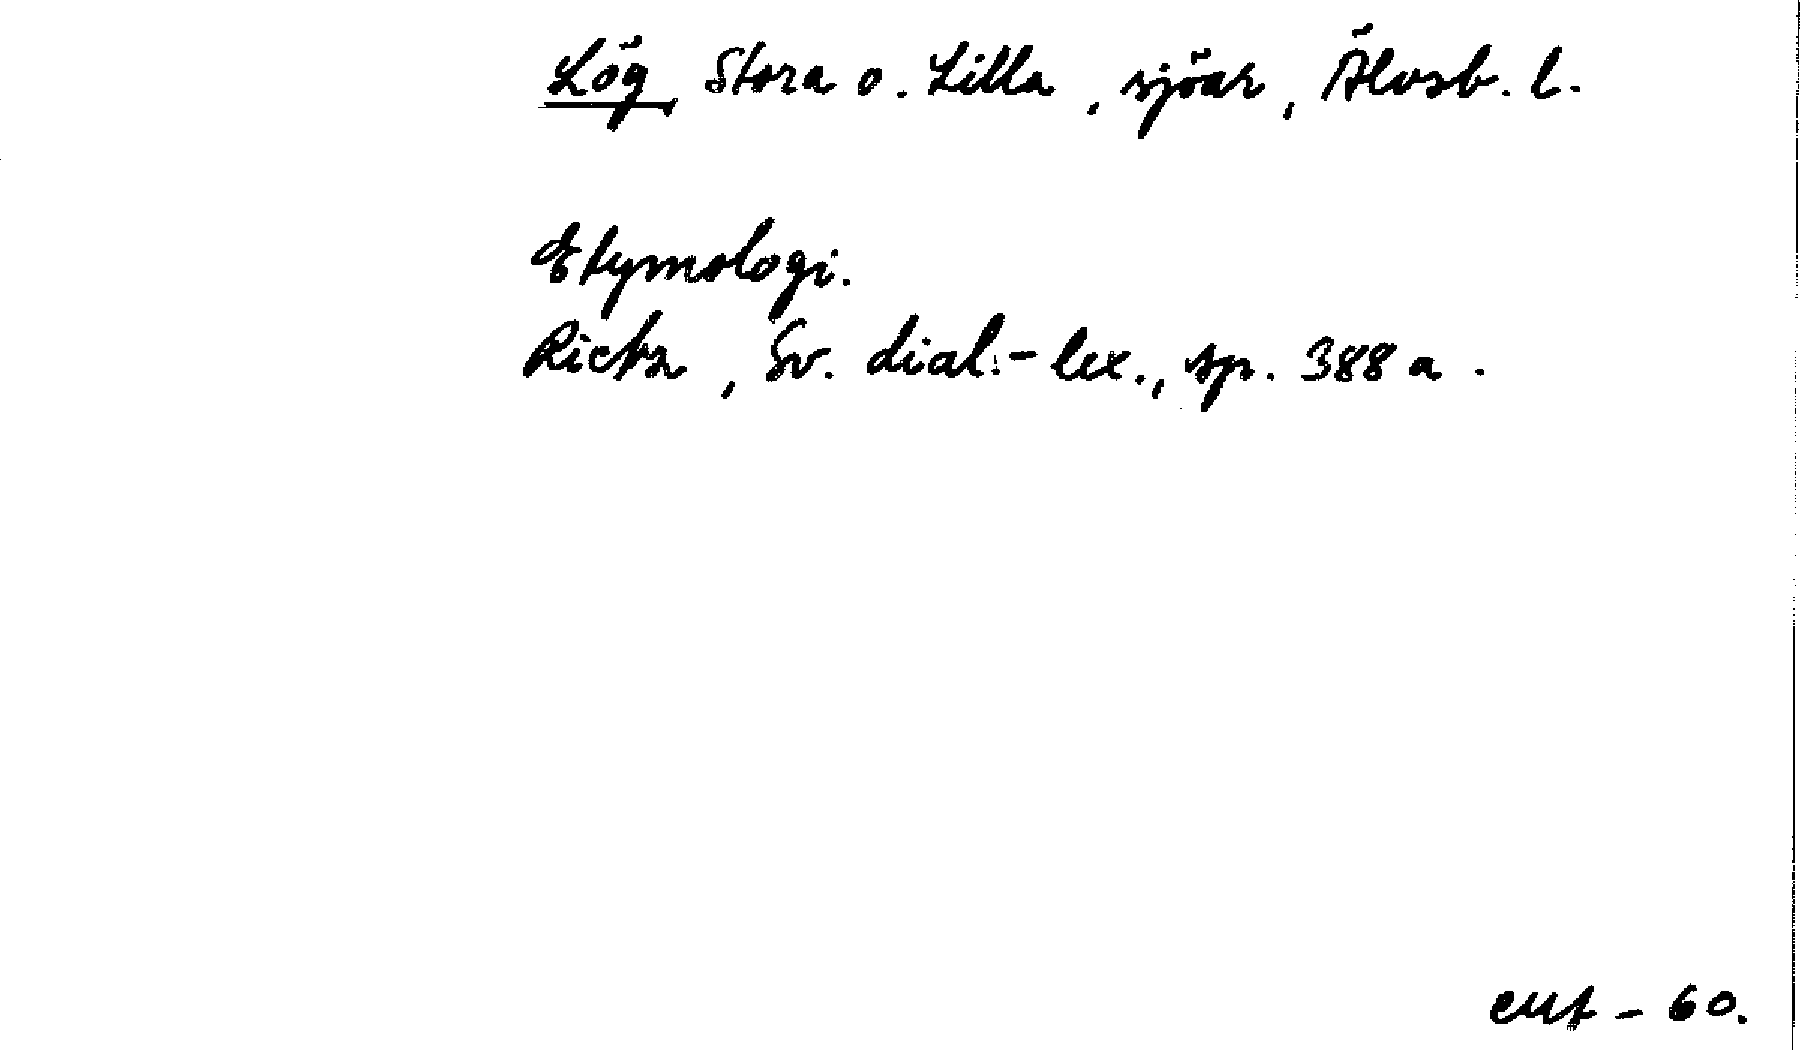 Lög, Stora o. Lilla, sjöar, Älvsb. l.
Etymologi.
Rietz, Sv. dial.-lex., sp. 388 a.
- 60.